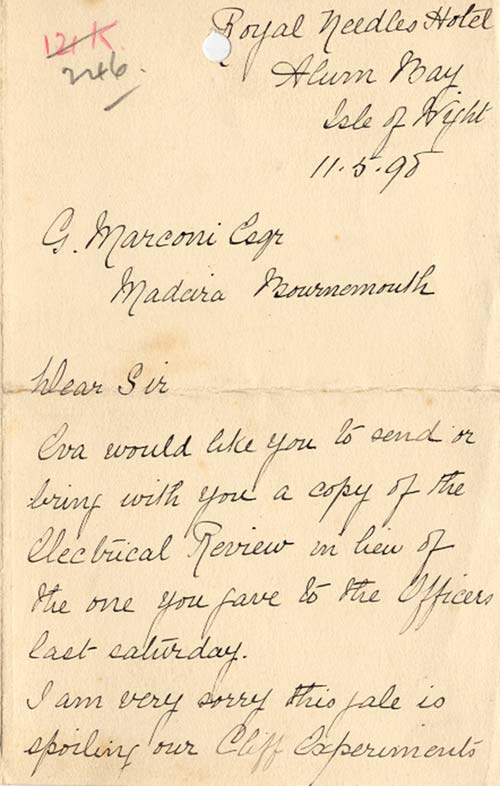 121 K.
246.
Royal Needles Hotel
Alum Bay
Isle of Wight
11.5.98
G. Marconi Esqr
Madeira Bournemouth
Dear Sir
Eva would like you to send or
bring with you a copy of the
Electrical Review in lieu of
the one you gave to the Officers
last saturday.
I am very sorry this gale is
spoiling our Cliff Experiments